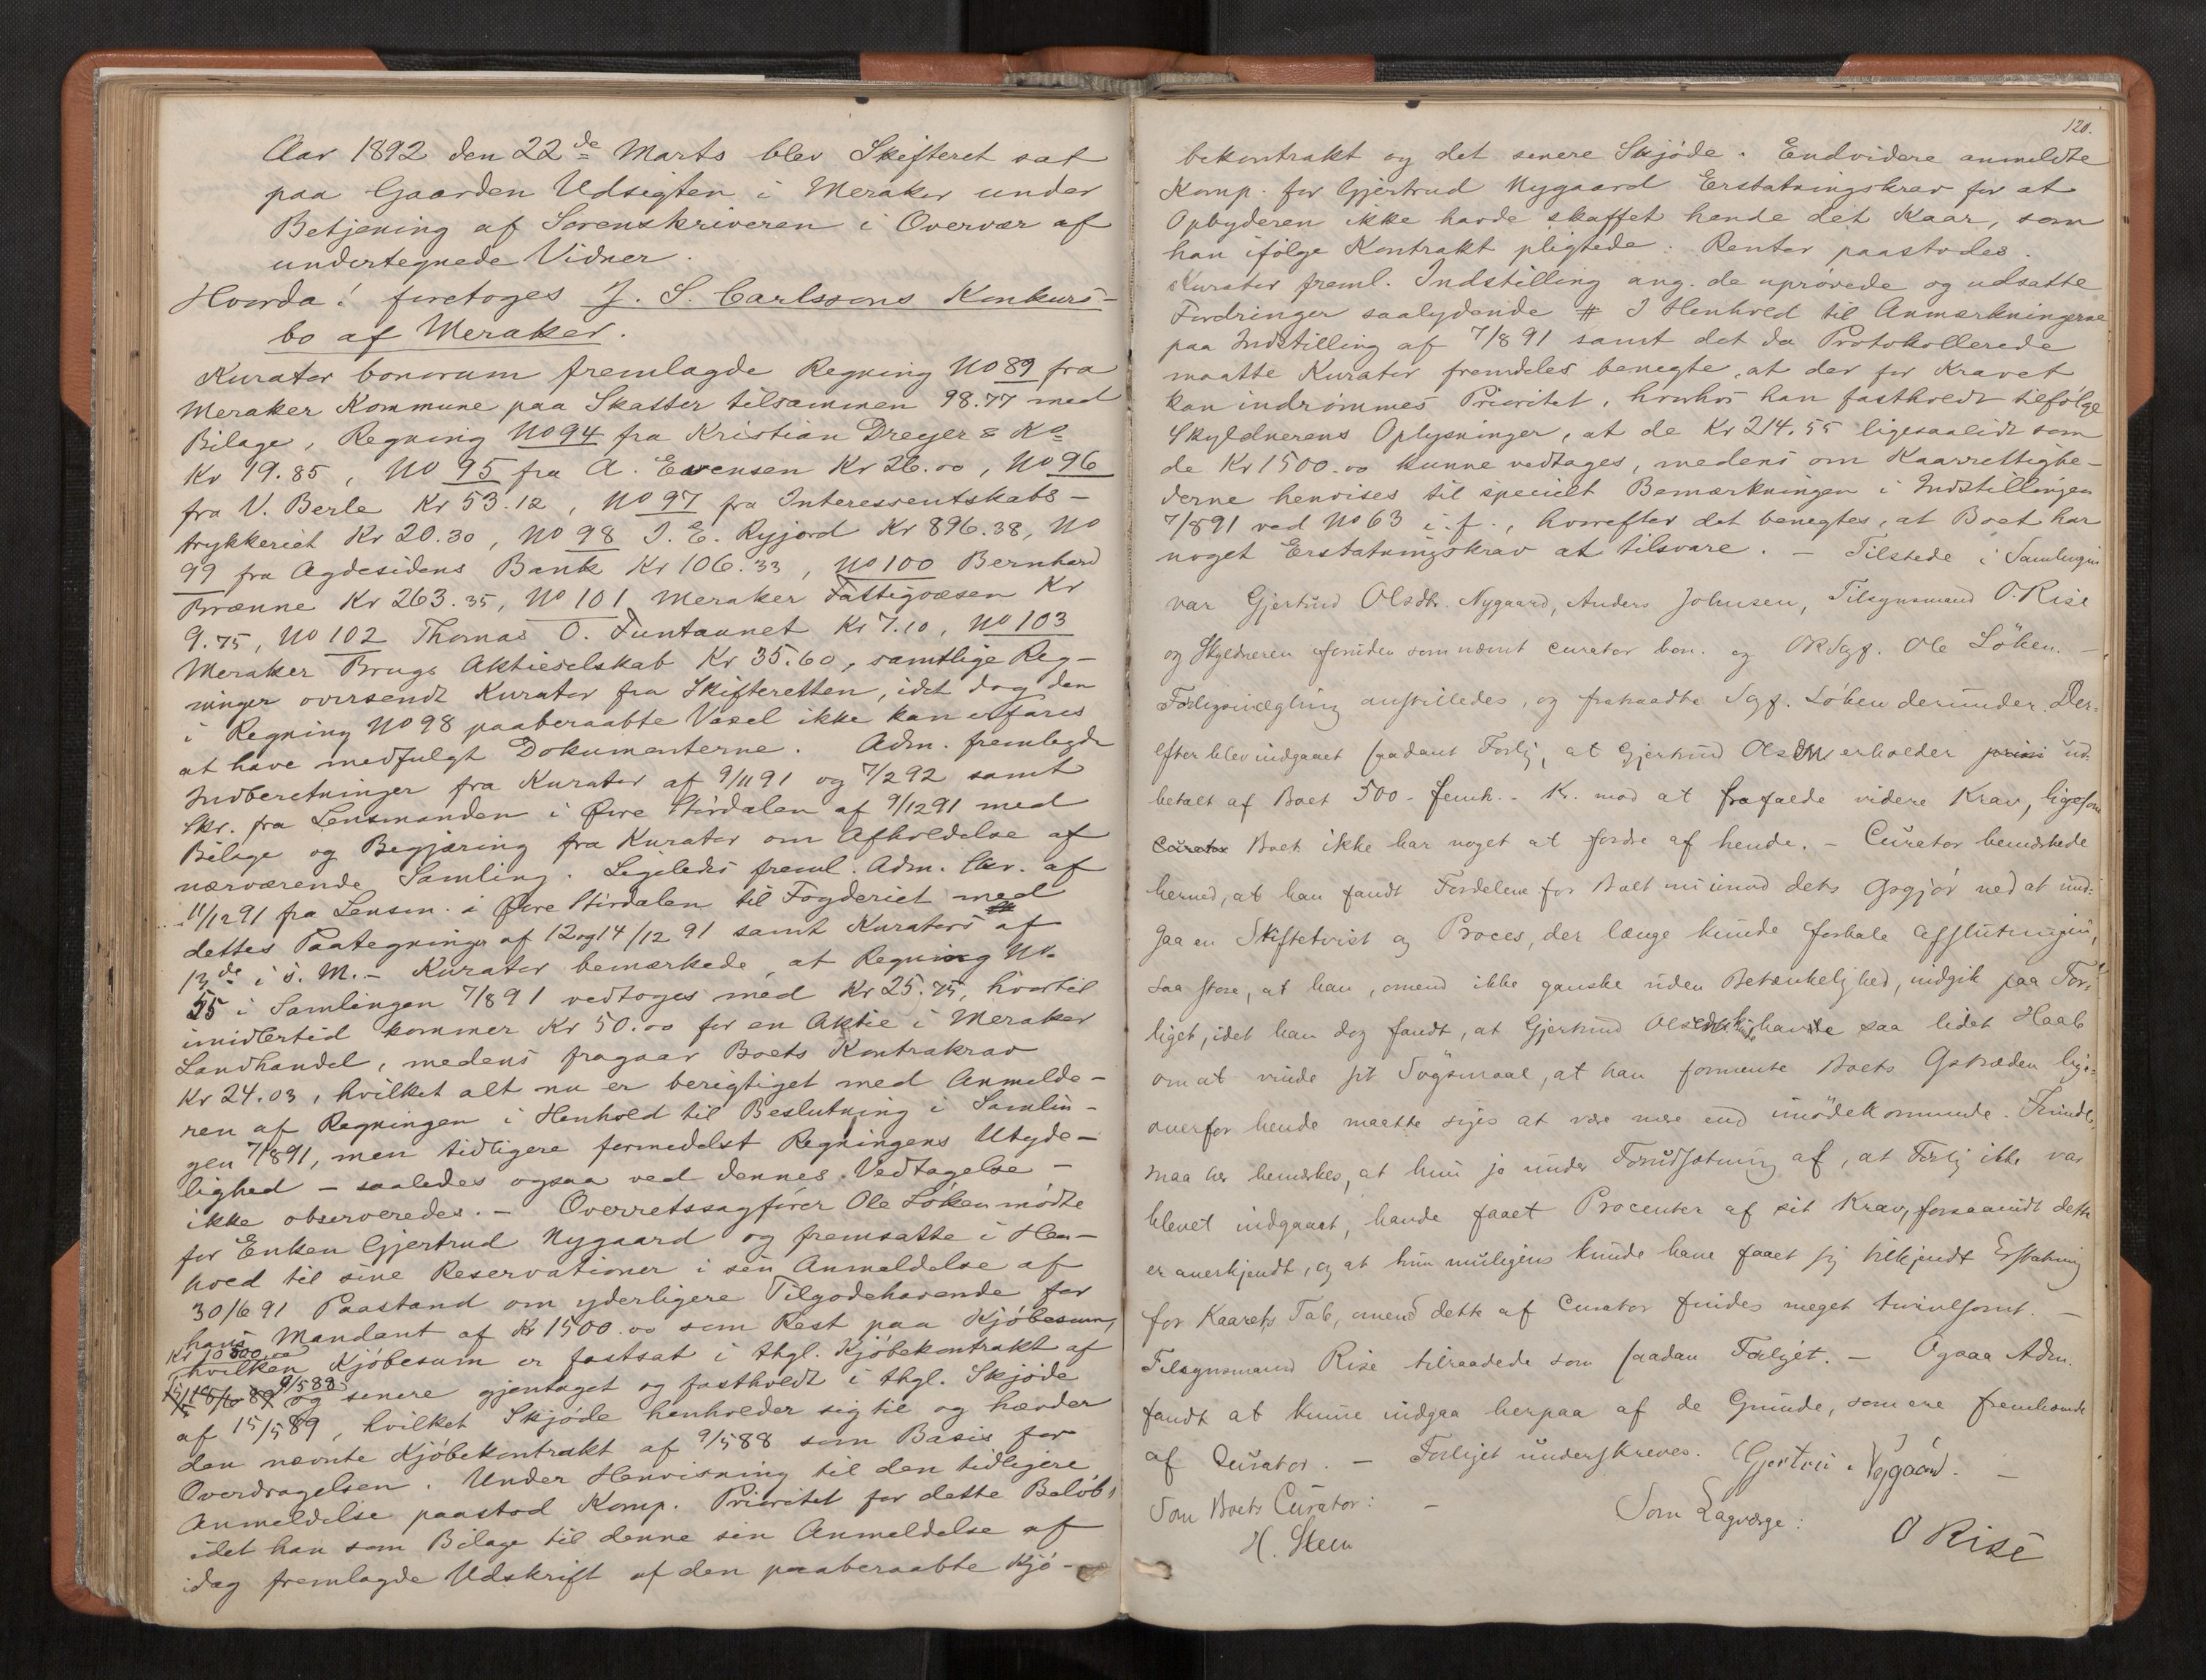 Aar 1892 den 22de Marts blev Skifteret sat
paa Gaarden Udsigten i Meraker under
Betjening af Sorenskriveren i Overvær af
undertegnede Vidner.
Hvorda: foretoges J. S. Carlssons Konkurs-
bo af Meraker.
Kurator bonorum fremlagde Regning No 89 fra
Meraker Kommune paa Skatter tilsammen 98.77 med
Bilage, Regning No 94 fra Kristian Dreyer & Ko
Kr 19.85, No 95 fra A. Evensen Kr 26.00, No 96
fra V. Berle Kr 53.12, No 97 fra Interessentskabs-
trykkeriet Kr 20.30, No 98 J. E. Ryjord Kr 896.38, No
99 fra Agdesidens Bank Kr 106.33, No 100 Bernhard
Brænne Kr 263.35, No 101 Meraker Fattigvæsen Kr
9.75, No 102 Thomas O. Funtaunet Kr 7.10, No 103
Meraker Brugs Aktieselskab Kr 35.60, samtlige Reg-
ninger oversendt Kurator fra Skifteretten, idet dog den
i Regning No 98 paaberaabte Vexel ikke kan erfares
at have medfulgt Dokumenterne. Adm. fremlagde
Indberetninger fra Kurator af 9/11 91 og 7/2 92 samt
Skr. fra Lensmanden i Øvre Stördalen af 9/12 91 med
Bilage og Begjæring fra Kurator om Afholdelse af
nærværende Samling. Ligeledes freml. Adm. Skr. af
11/12 91 fra Lensm. i Øvre Stirdalen til Fogderiet med
dettes Paategninger af 12 og 14/12 91 samt Kurators af
13de i s. M. - Kurator bemærkede, at Regning No.
55 i Samlingen 7/8 91 vedtoges med Kr 25.75, hvortil
imidlertid kommer Kr 50.00 for en Aktie i Meraker
Landhandel, medens fragaar Boets Kontrakrav
Kr 24.03, hvilket alt nu er berigtiget med Anmelde-
ren af Regningen i Henhold til Beslutning i Samlin-
gen 7/8 91, men tidligere formedelst Regningens Utyde-
lighed - saaledes ogsaa ved dennes Vedtagelse -
ikke observeredes. - Overretssagförer Ole Löken mödte
for Enken Gjertrud Nygaard og fremsatte i Hen-
hold til sine Reservationer i sin Anmeldelse af
30/6 91 Paastand om yderligere Tilgodehavende for
hans Mandant af Kr 1500.00 som Rest paa Kjöbesum,
Kr 10500.00
hvilken Kjöbesum er fastsat i thgl. Kjöbekontrakt af
9/5 88
og senere gjentaget og fastholdt i thgl. Skjöde
af 15/5 89, hvilket Skjöde henholder sig til og hævder
den nævnte Kjöbekontrakt af 9/5 88 som Basis for
Overdragelsen. Under Henvisning til den tidligere
Anmeldelse paastod Komp. Prioritet for dette Belöb,
idet han som Bilage til denne sin Anmeldelse af
idag fremlagde Udskrift af den paaberaabte Kjö-
120.
bekontrakt og det senere Skjöde. Endvidere anmeldte
Komp. for Gjertrud Nygaard Erstatningskrav for at
Opbyderen ikke havde skaffet hende det Kaar, som
han ifölge Kontrakt pligtede. Renter paastodes.
Kurator freml. Indstilling ang. de uprövede og udsatte
Fordringer saalydende # I Henhold til Anmærkningerne
paa Indstilling af 7/8 91 samt det da Protokollerede
maatte Kurator fremdeles benegte, at der for Kravet
kan indrömmes Prioritet, hvorhos han fastholdt tilfölge
Skyldnerens Oplysninger, at de Kr 214.55 ligesaalidt som
de Kr 1500.00 kunne vedtages, medens om Kaarrettighe-
derne henvises til specielt Bemærkningen i Indstillingen
7/8 91 ved No 63 i. f., hvorefter det benegtes, at Boet har
noget Erstatningskrav at tilsvare. - Tilstede i Samlingen
var Gjertrud Olsdtr. Nygaard, Anders Johnsen, Tilsynsmand O. Rise
og Skyldneren foruden som nævnt curator bon. og ORSagf. Ole Löken. -
Forligsmægling anstilledes, og fratraadte Sagf. Löken derunder. Der-
efter blev indgaaet saadant Forlig, at Gjertrud Olsdtr erholder ud-
betalt af Boet 500 - femh. - Kr. mod at frafalde videre Krav, ligesom
Boet ikke har noget at fordre af hende. - Curator bemærkede
herved, at han fandt Fordelene for Boet ved at und-
gaa en Skiftetvist og Proces, der længe kunde forhale Afslutningen,
saa store, at han, omend ikke ganske uden Betænkelighed, indgik paa For-
liget, idet han dog fandt, at Gjertrud havde saa lidet Haab
om at vinde sit Sögsmaal, at han formente Boets Optræden lige-
overfor hende maatte siges at være mere end imödekommende.
maa her bemærkes, at hun jo under Forudsætning af, at Forlig ikke var
blevet indgaaet, havde faaet Procenter af sit Krav, forsaavidt dette
er anerkjendt, og at hun muligens kunde have faaet sig tilkjendt Erstatning
for Kaarets Tab, omend dette af Curator findes meget tvivlsomt. -
Tilsynsmand Rise tilraadede som saadan Forliget. - Ogsaa Adm.
fandt at kunne indgaa herpaa af de Grunde, som ere fremhævede
af Curator. - Forliget underskreves. Gjertru . Nygaard. -
Som Boets Curator: -
Som Lagværge:
H. Steen
O Rise